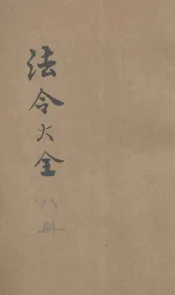 法令大全 八冊